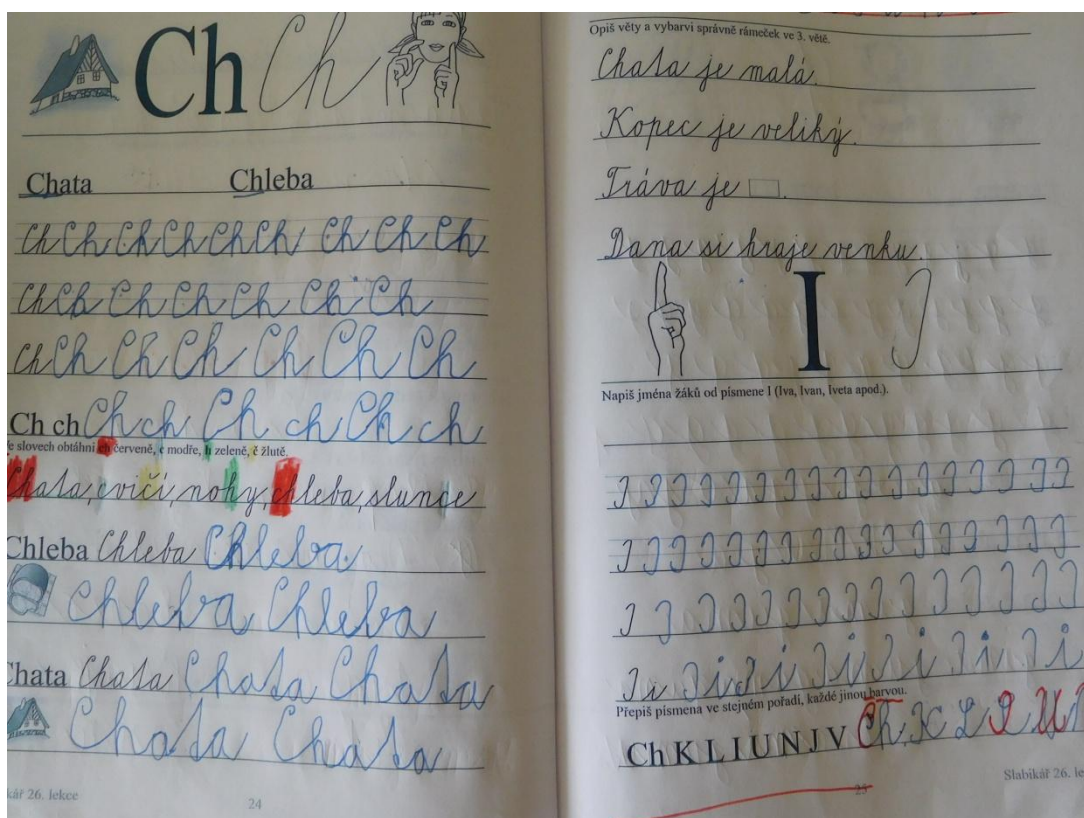 Ch Ch
Chata Chleba
Ch Ch Ch Ch Ch Ch Ch Ch Ch
Ch Ch Ch Ch Ch Ch Ch
Ch Ch Ch Ch Ch Ch Ch
Ch ch Ch ch Ch ch Ch ch
slovech obtáhni ch červeně, c modře, h zeleně, č žlutě.
Chata, cvičí, nohy, chleba, slunce
Chleba Chleba Chleba
Chleba Chleba
Chata Chata Chata Chata
Chata Chata
26. lekce
24
Opiš věty a vybarvi správně rámeček ve 3. větě.
Chata je malá.
Kopec je veliký.
Tráva je .
Dana si hraje venku.
I I
Napiš jména žáků od písmene I (Iva, Ivan, Iveta apod.).
I I I I I I I I I I I I I I I
I I I I I I I I I I I I I I I
I I I I I I I I I I I I I
I i I i I i I i I i I i I i
Přepiš písmena ve stejném pořadí, každé jinou barvou.
Ch K L I U N J V Ch K L I U
25
Slabikář 26.